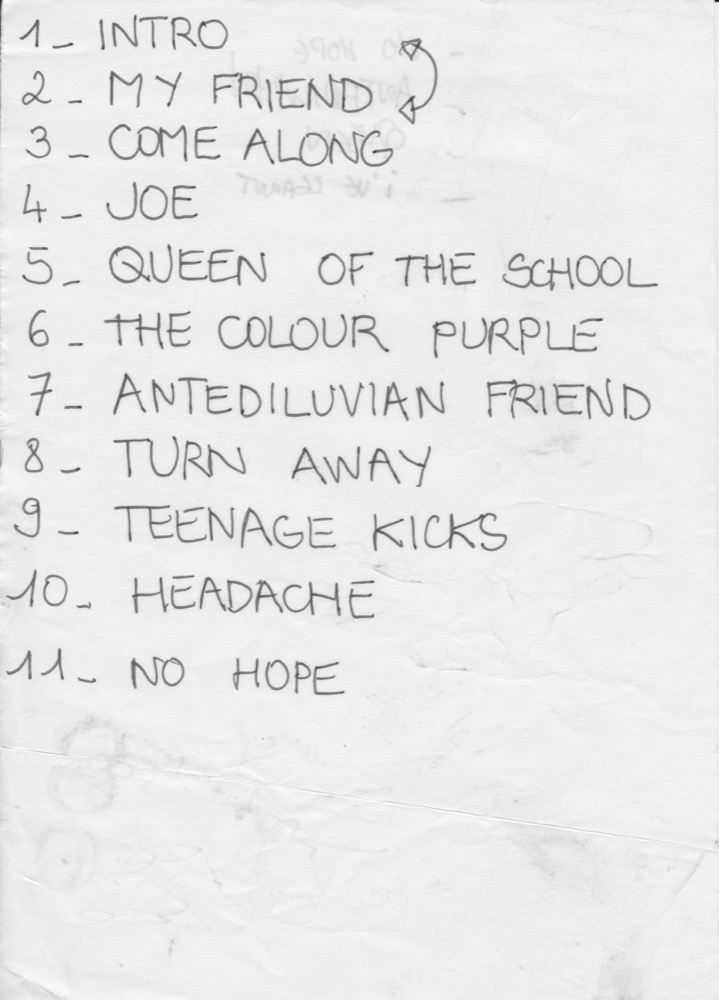 1_ INTRO
2_ MY FRIEND
3_ COME ALONG
4_ JOE
5_ QUEEN OF THE SCHOOL
6_ THE COLOUR PURPLE
7_ ANTEDILUVIAN FRIEND
8_ TURN AWAY
9_ TEENAGE KICKS
10_ HEADACHE
11_ NO HOPE